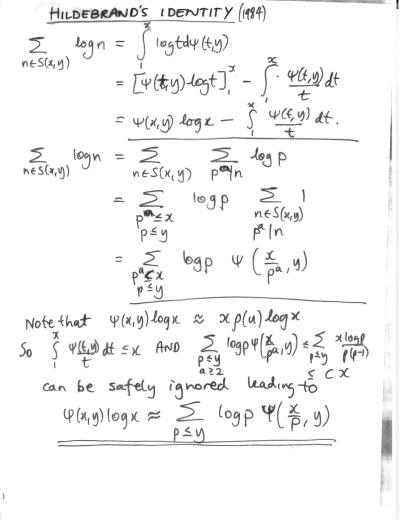 HILDEBRAND'S IDENTITY (1984)
∑_{n∈S(x,y)} log n = ∫_1^x log t dψ(t,y).
= [ψ(t,y) log t]_1^x − ∫_1^x ψ(t,y)/t dt
= ψ(x,y) log x − ∫_1^x ψ(t,y)/t dt.
∑_{n∈S(x,y)} log n = ∑_{n∈S(x,y)} ∑_{p^a|n} log p
= ∑_{p^a≤x, p≤y} log p ∑_{n∈S(x,y), p^a|n} 1
= ∑_{p^a≤x, p≤y} log p ψ(x/p^a, y)
Note that ψ(x,y) log x ≈ x ρ(u) log x
So ∫_1^x ψ(t,y)/t dt ≤ x AND ∑_{p≤y, a≥2} log p ψ(x/p^a, y) ≤ ∑_{p≤y} x log p / p(p-1)
≤ C x
can be safely ignored leading to
ψ(x,y) log x ≈ ∑_{p≤y} log p ψ(x/p, y)